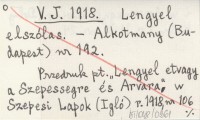 V. J. 1918. Lengyel
elszólás. – Alkotmány (Bu-
dapest) nr 192.
Przedruk pt. „Lengyel étvágy
a Szepességre és Árvára” w
Szepesi Lapok (Igló) r. 1918, nr 106